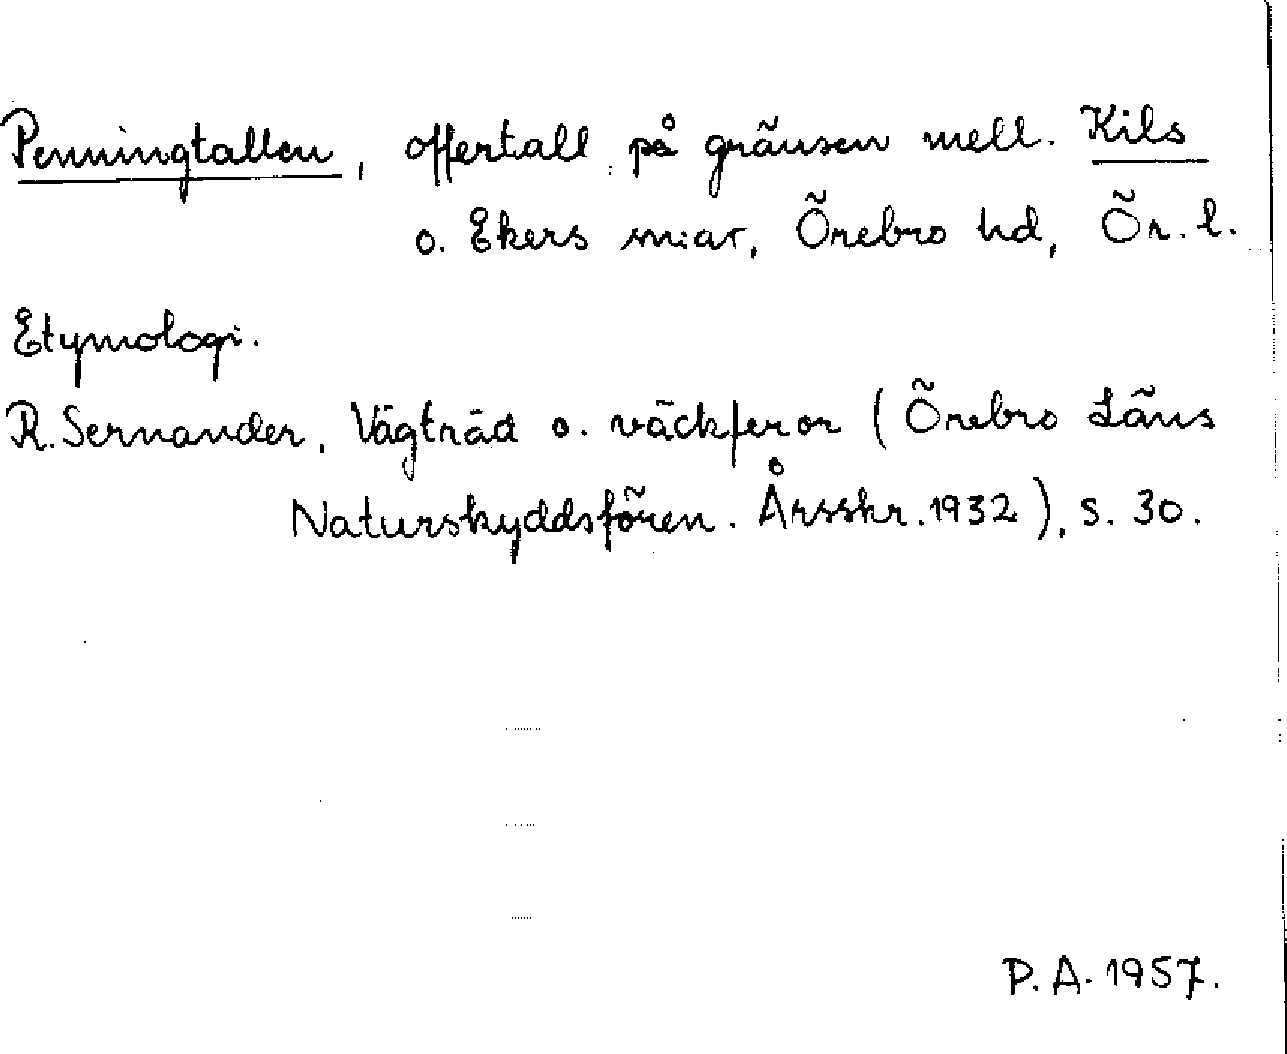 Penningtallen, offertall på gränsen mell. Kils
o. Ekers snar, Örebro hd, Ör. l.
Etymologi.
R. Sernander, Vägträd o. väckferor (Örebro Läns
Naturskyddsfören. Årsskr. 1932), s. 30.
P. A. 1957.